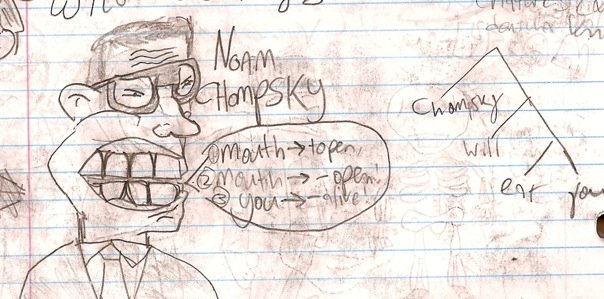 NOAM
CHOMPSKY
① mouth → +open,
② mouth → -open!
③ you → -alive.
Chompsky
will
eat you